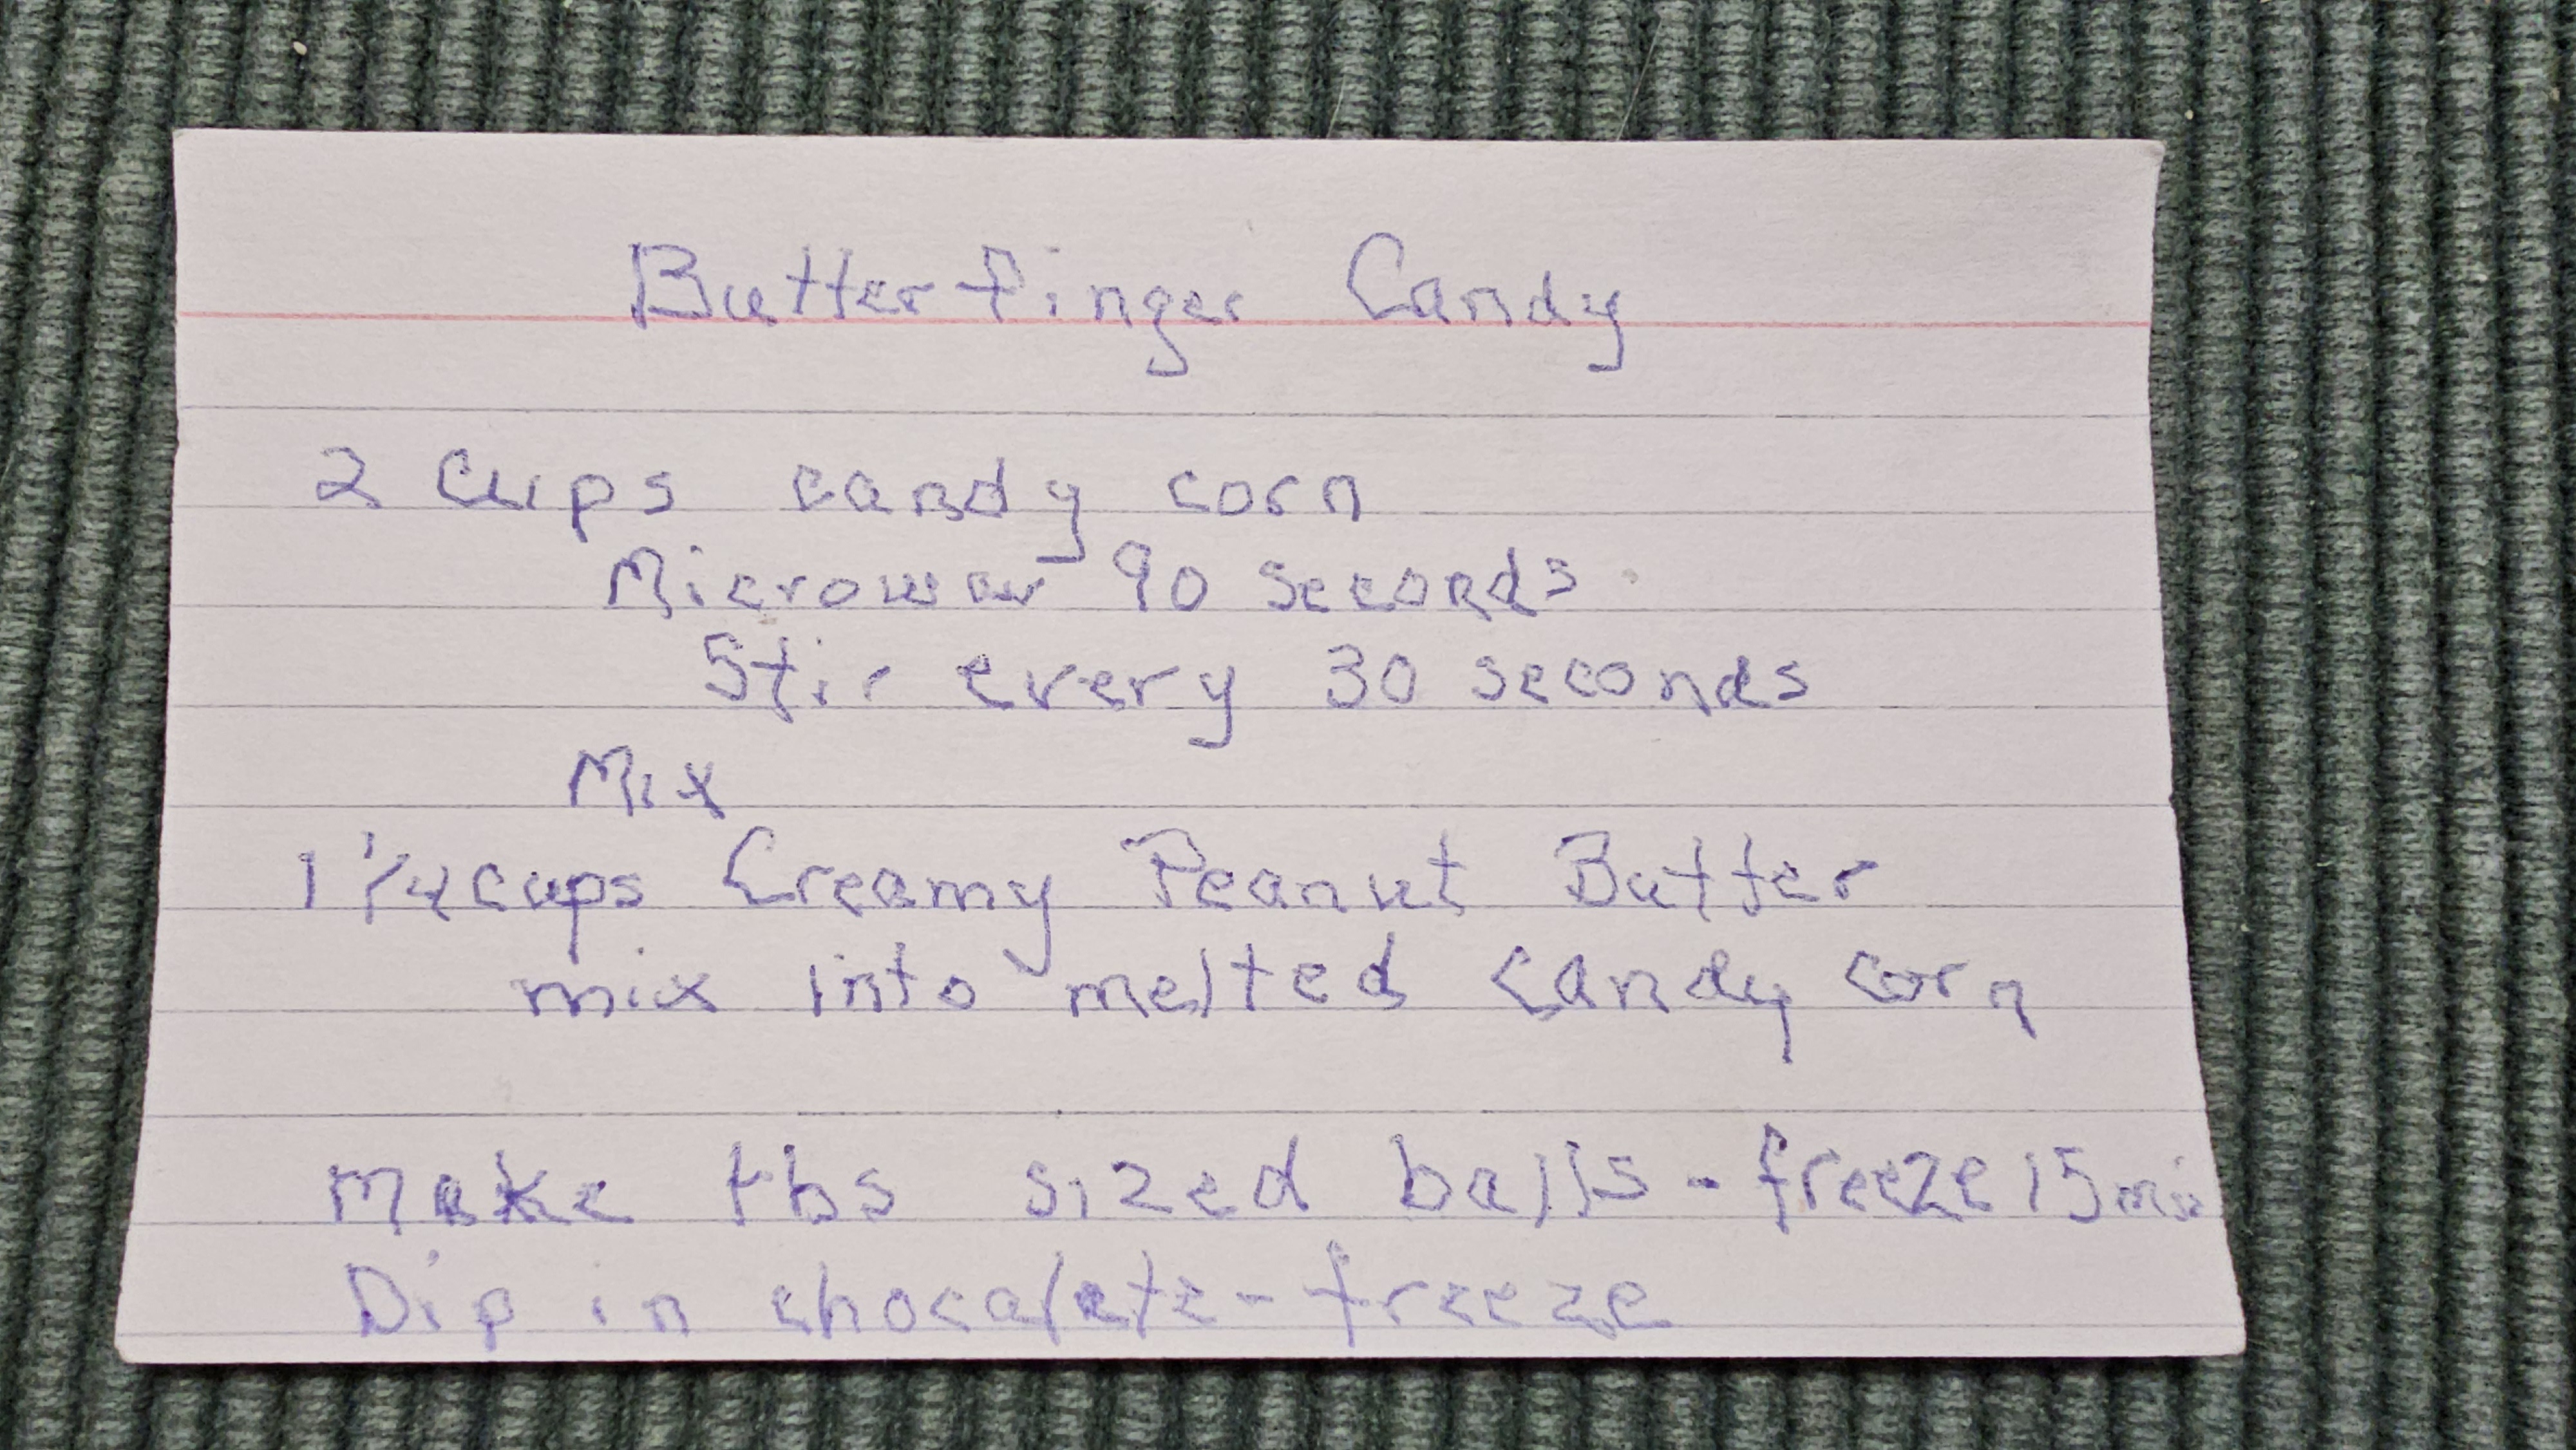 Butterfinger Candy
2 Cups candy corn
Microwav 90 seconds.
Stir every 30 seconds
Mix
1 1/4 cups Creamy Peanut Butter
mix into melted candy corn
Make tbs sized balls - freeze 15 min
Dip in chocalete - freeze